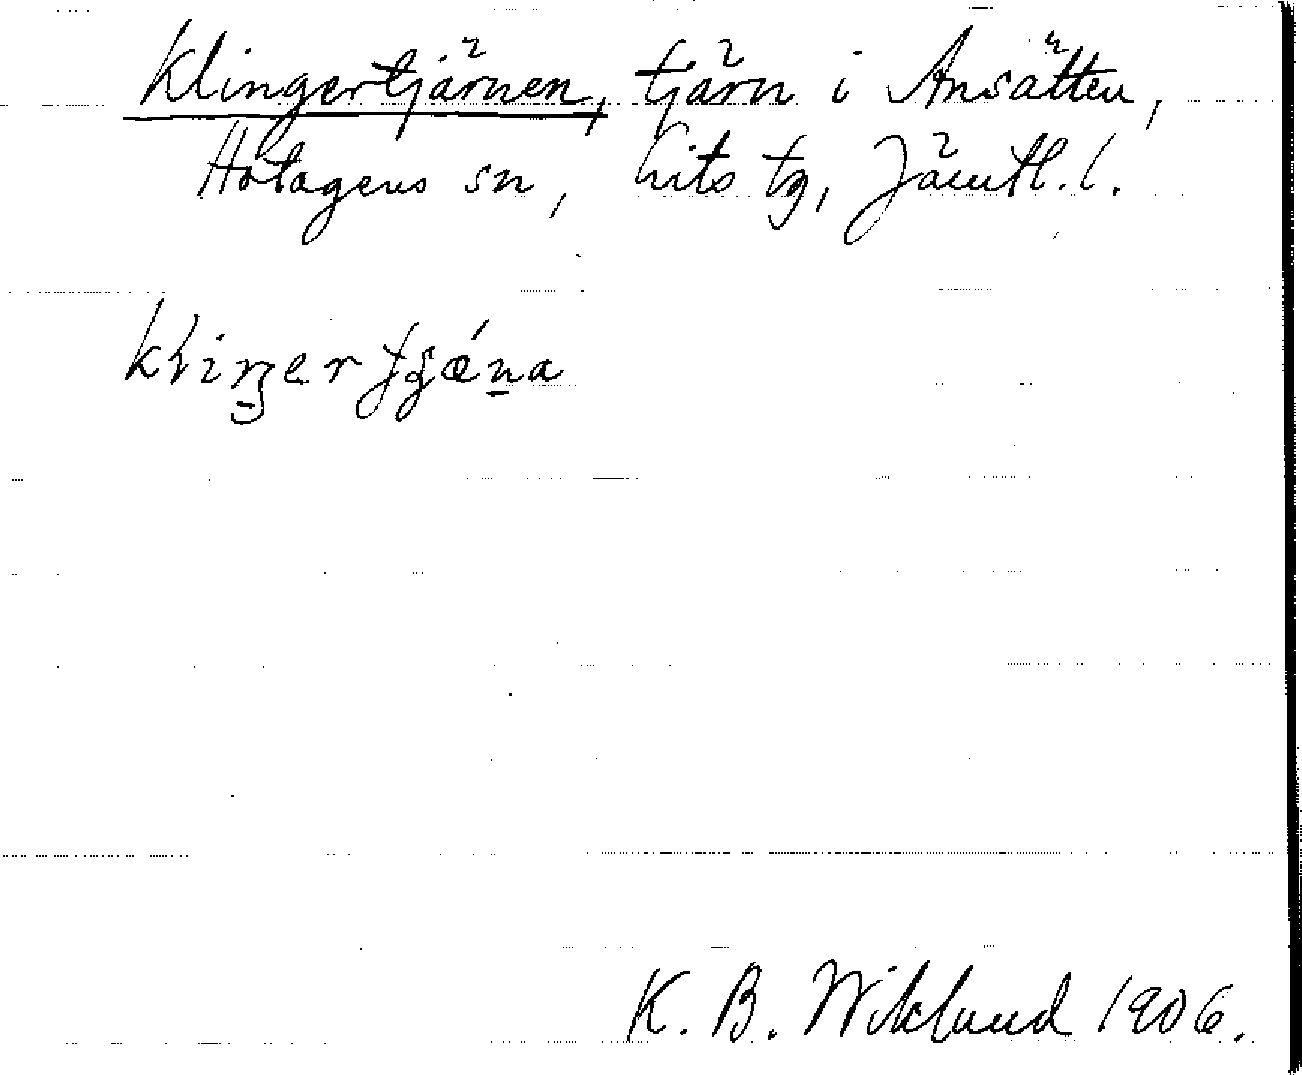 Klingertjärnen, tjärn i Ansätten,
Hotagens sn, Lits tg, Jämtl. l.
K. B. Wiklund 1906.